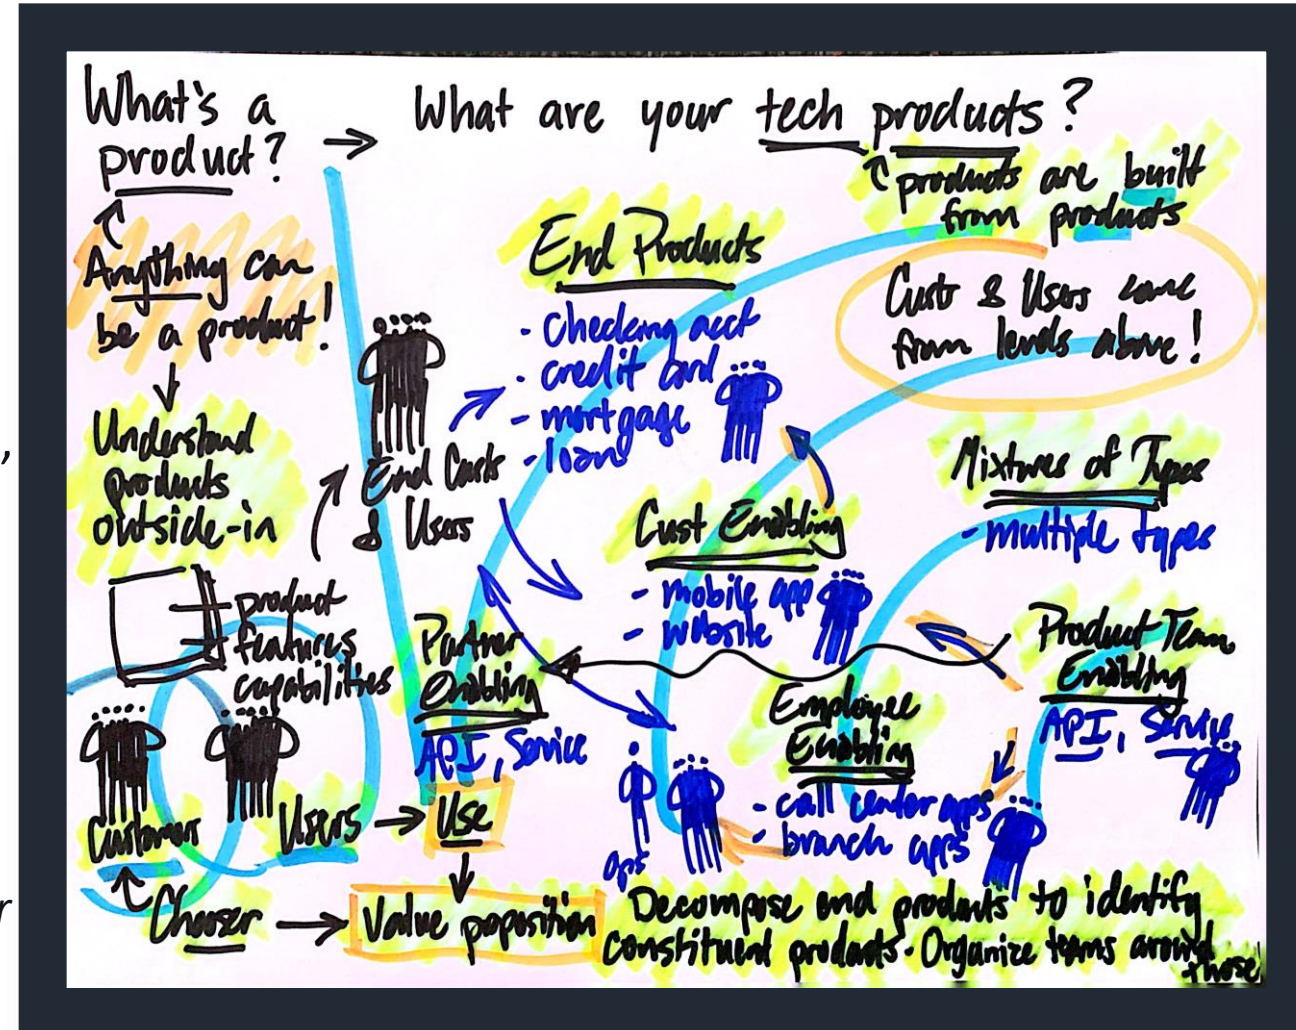 What's a
product?
→ What are your tech products?
products are built
from products
Anything can
be a product!
Understand
products
outside-in
product
features
capabilities
Customers
Users → Use
Chooser → Value poposition
End Custs
& Users
End Products
- checking acct
- credit card
- mortgage
- loan
Custs & Users come
from levels above!
Cust Enabling
- mobile app
- website
Mixtures of Types
- multiple types
Partner
Enabling
API, Service
Employee
Enabling
- call center apps
- branch apps
Ops
Product Team
Enabling
API, Service
Decompose end products to identify
constituent products. Organize teams around
those
,
r